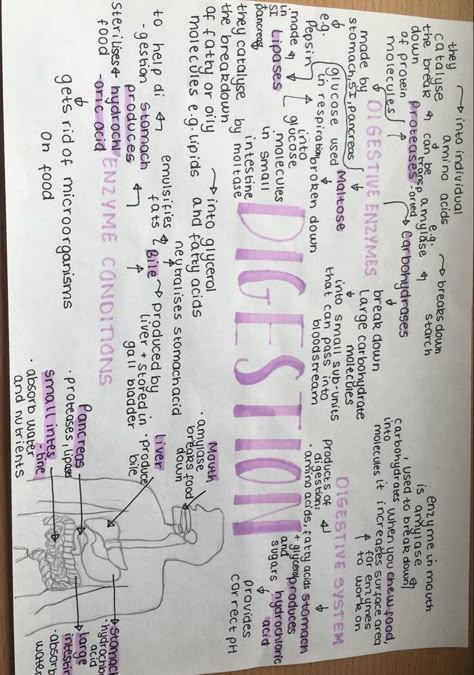 they
catalyse
the break
down
of protein
molecules
into individual
amino acids
can be
transp
-orted
Proteases
e.g.
amylase
breaks down
starch
Carbohydrases
break down
large carbohydrate
molecules
into small sub-units
that can pass into
bloodstream
DIGESTIVE ENZYMES
made by
stomach, SI, Pancreas
e.g.
Pepsin
glucose used
in respiration
Maltose
broken down
into
glucose
molecules
in small
intestine
by maltase
Lipases
made
in
SI
pancreas
they catalyse
the breakdown
of fatty or oily
molecules e.g. lipids
into glyceral
and fatty acids
enzyme in mouth
is amylase
used to break down
carbohydrates
into
molecules
When you chew food,
it increases surface area
for enzymes
to work on
DIGESTIVE SYSTEM
Products of
digestion:
amino acids, fatty acids
+ glycerol
and
sugars
stomach
produces
hydrochloric
acid
provides
correct pH
DIGESTION
ENZYME CONDITIONS
to help di
-gestion stomach
produces
hydrochl
-oric acid
sterilises
food
gets rid of microorganisms
on food
Bile
emulsifies
fats
neutralises stomach acid
produced by
liver + stored in
gall bladder
Mouth
· amylase
breaks food
down
Liver
· produce
bile
Pancreas
· proteases, lipases
small intes
-tine
· absorb water
and nutrients
stomach
· hydrochloric
acid
large
intestine
· absorb
water